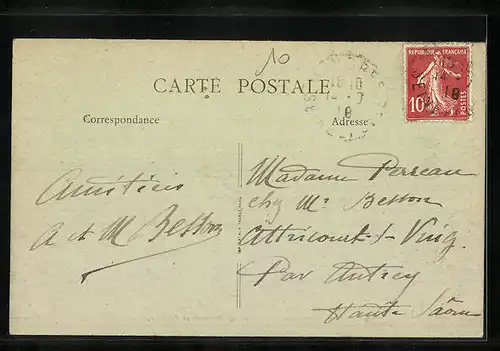 10
RÉPUBLIQUE FRANÇAISE
10
POSTES
CARTE POSTALE
18 10
18
Correspondance
Adresse
Amitiés
A et M Besson
Madame Perreau
chez Mr Besson
Attricourt
Par Autrey
Haute Saône